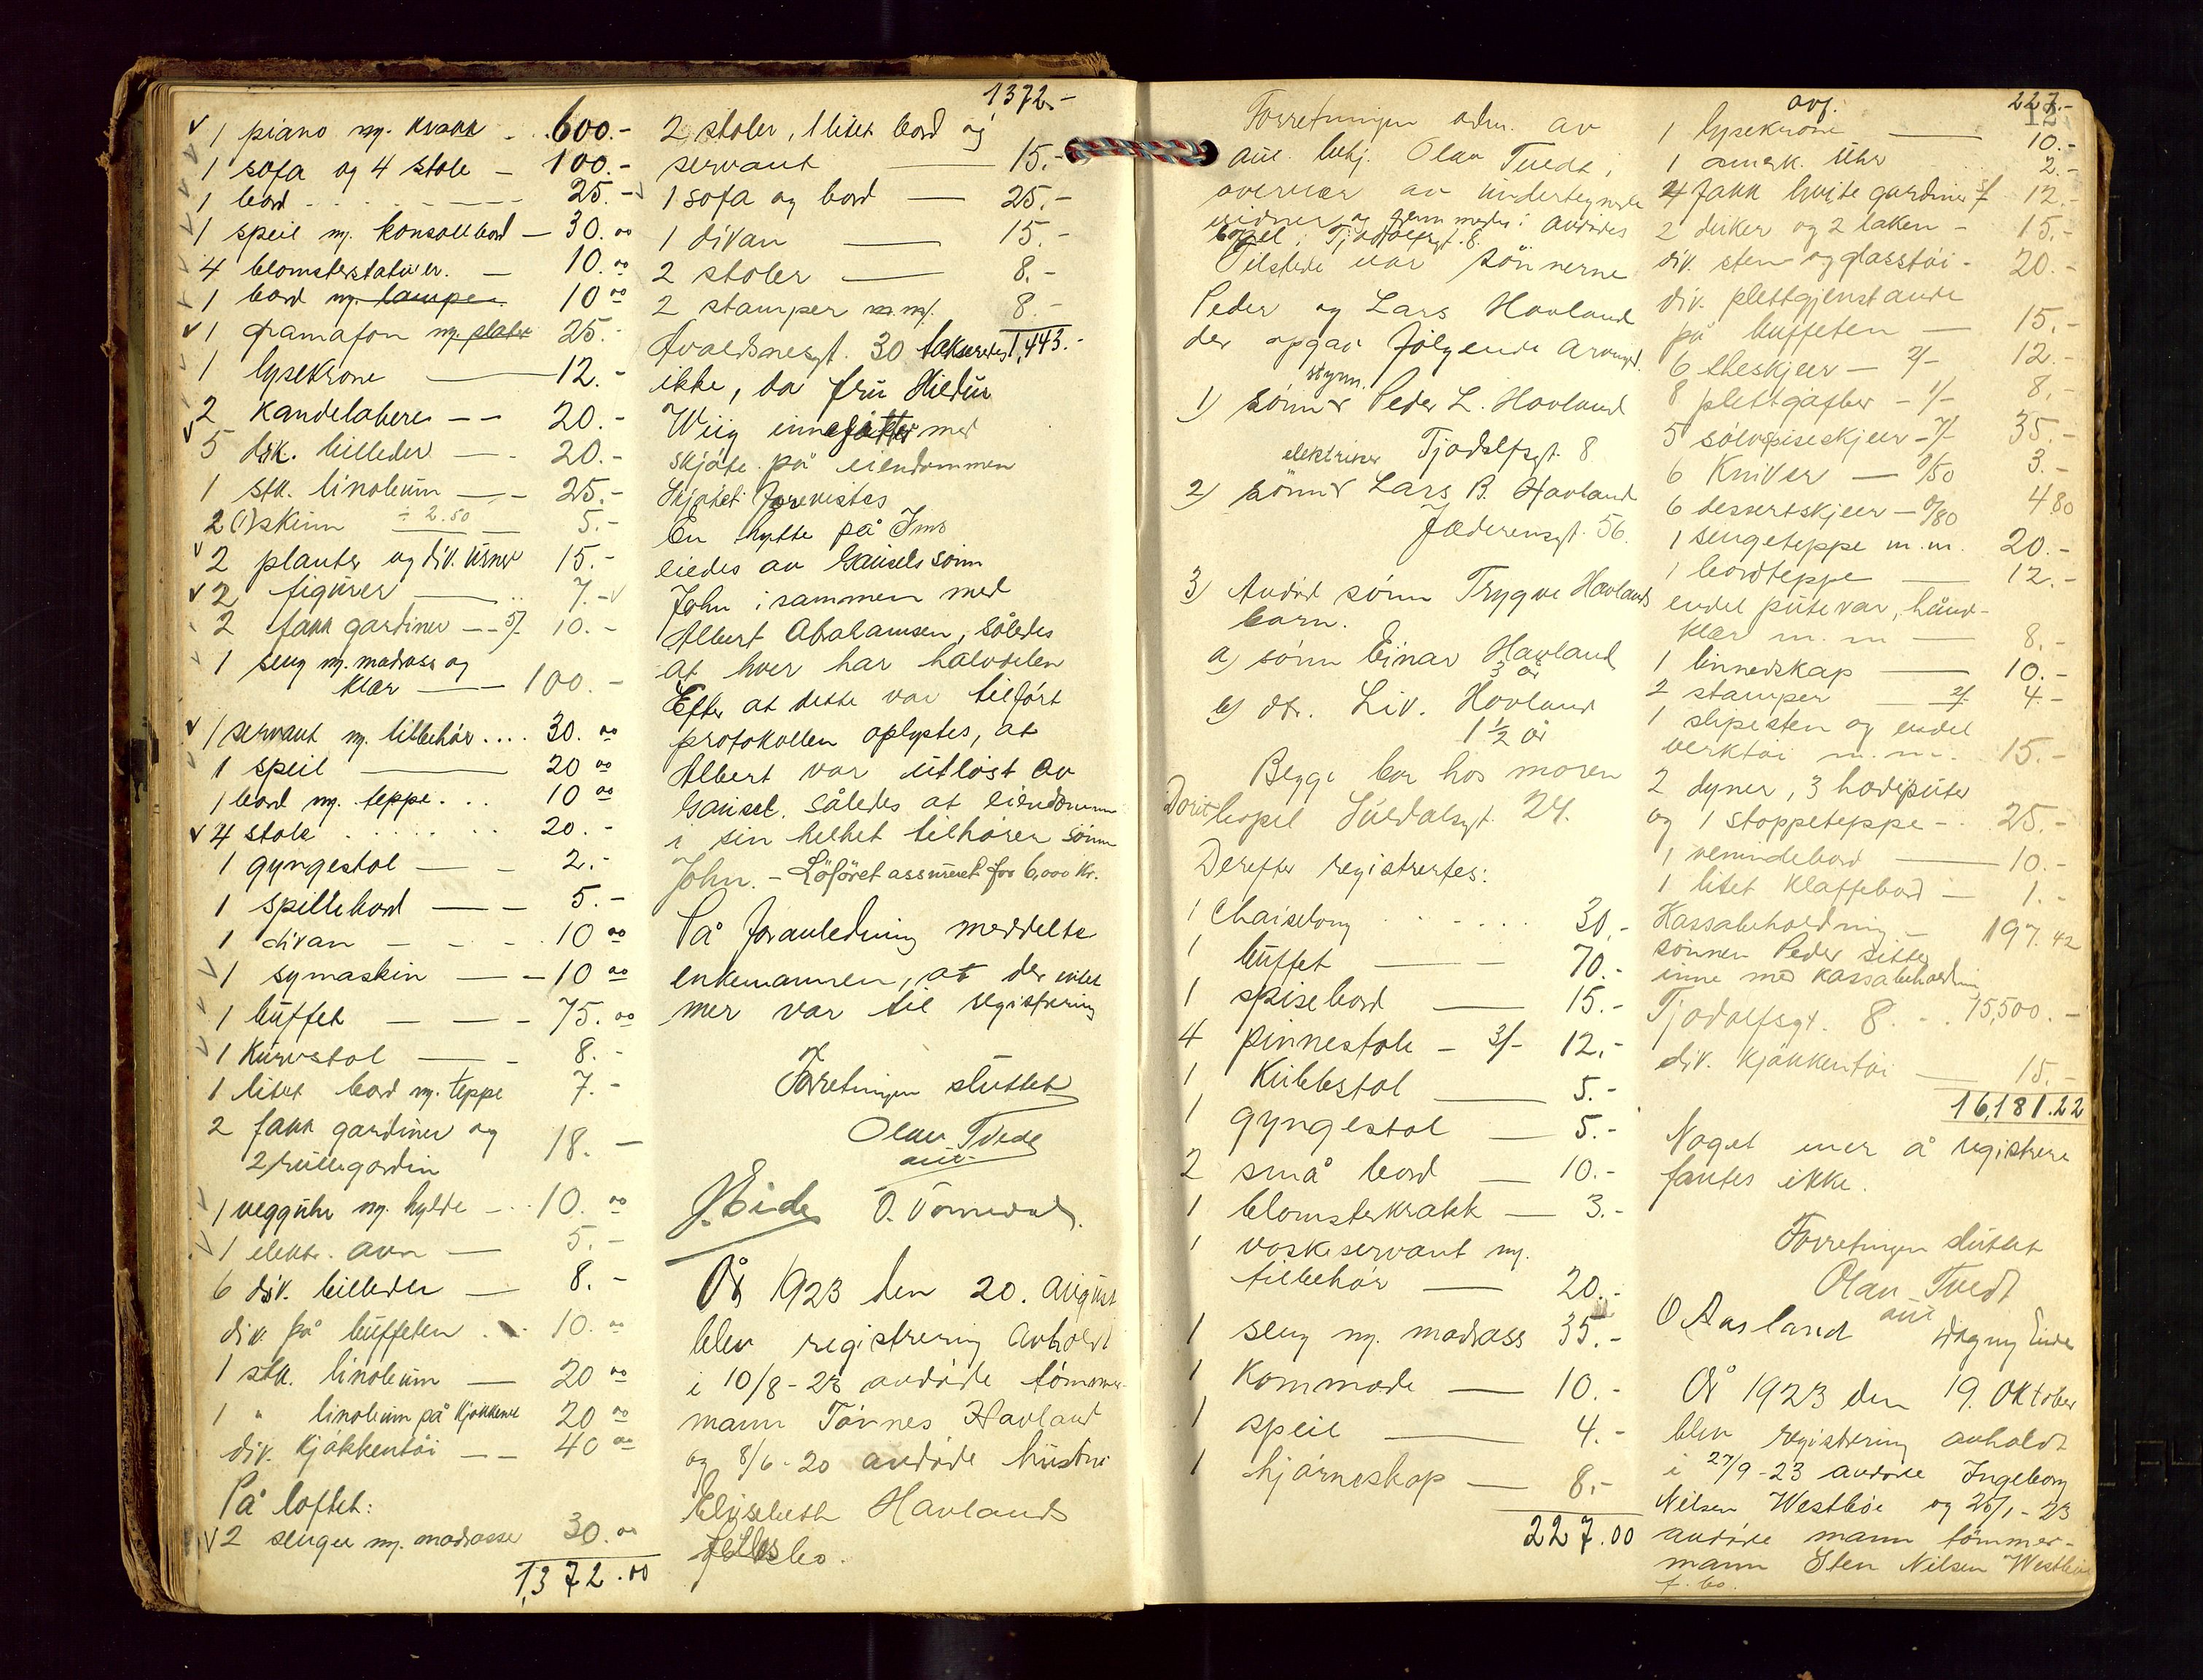 1 piano m/ krakk - 600.-
1 sofa og 4 stole - 100.-
1 bord - 25.-
1 speil m/ konsollbord - 30.00
4 blomsterstativer. - 10.00
1 bord m/ lampe. 10.00
1 gramafon m/ plater 25.-
1 lysekrone - 12.-
2 kandelabere - 20.-
5 stk. billeder - 20.-
1 stk. linoleum - 25.-
2 (1) skinn ÷ 2.50 5.-
2 planter og div. urner 15.-
2 figurer - 7.-
2 fakk gardiner - 5/- 10.-
1 seng m/ madrass og
klær - 100.-
1 servant m/ tilbehör.... 30.00
1 speil - 20.00
1 bord m/ teppe... 10.00
4 stole ..... 20.-
1 gyngestol - 2.-
1 spillebord - 5.-
1 divan - 10.00
1 symaskin - 10.00
1 buffet - 75.00
1 kurvstol - 8.-
1 litet bord m/ teppe 7.-
2 fakk gardiner og
2 rullegardin 18.-
1 veggúhr m/ hylde - 10.00
1 elektr. ovn - 5.-
6 div. billeder - 8.-
div. på buffeten .. 10.00
1 stk. linoleum - 20.00
1 " linoleum på kjøkkenet 20.00
div. kjøkkentøi - 40.00
På loftet:
2 senger m/ madrasser 30.00
1,372.00
1372.-
2 stoler, 1 litet bord og
servant - 15.-
1 sofa og bord - 25.-
1 divan - 15.-
2 stoler - 8.-
2 stamper m.m. 8.-
Avaldsnesgt. 30 takseredes 1,443.-
ikke, da fru Hildur
Wiig innesitter med
skjøte på eiendommen
Skjøtet forevistes
En hytte på Ims
eiedes av Gausels sønn
John i sammen med
Albert Abrahamsen, således
at hver har halvdelen
Efter at dette var tilført
protokollen oplystes, at
Albert var utløst av
Gausel, således at eiendommen
i sin helhet tilhører sønn
John. - Løsøret assureret for 6,000 kr.
På foranledning meddelte
enkemannen, at der intet
mer var til registrering
Forretningen sluttet
Olav Tvedt
aut.
J. Eide O. Tornedal.
År 1923 den 20. august
blev registrering avholdt
i 10/8-23 avdøde tömmer-
mann Tönnes Havland
og 8/6-20 avdöde hustru
Elisabeth Havlands
fellesbo.
Forretningen adm. av
aut. bchj. Olav Tvedt i
overvær av undertegnede
vidner og fremmedes i avdødes
bopel i Tjodolfsgt. 8.
Tilstede var sönnerne
Peder og Lars Havland
der opgav følgende arvinger.
1) sønn styrm. Peder L. Havland
Tjodolfsgt. 8
2) sønn elektriker Lars B. Havland
Jæderensgt. 56.
3) Avdød sønn Trygve Havlands
barn.
a) sønn Einar Havland
3 år
b) dtr. Liv. Havland
1 1/2 år
Begge bor hos moren
Dorit bopel Suldalsgt. 24.
Derefter registrertes:
1 Chaiselong .... 30.-
1 buffet - 70.-
1 spisebord - 15.-
4 pinnestole - 3/- 12.-
1 Kubbstol - 5.-
1 gyngestol - 5.-
2 små bord - 10.-
1 blomsterkrakk - 3.-
1 vaskeservant m/
tilbehör - 20.-
1 seng m/ madrass 35.-
1 kommode - 10.-
1 speil - 4.-
1 hjørneskap - 8.-
227.00
ovf. 227.-
1 lysekrone - 10.-
1 amerk. Uhr 2.-
4 fakk hvite gardiner 12.-
2 duker og 2 laken - 15.-
div. sten og glasstøi - 20.-
div. plettgjenstande
på buffeten - 15.-
6 theskjeer - 2/- 12.-
8 plettgafler - 1/- 8.-
5 sølvspiseskjeer - 7/- 35.-
6 Kniver - 0/50 3.-
6 dessertskjeer - 0/80 4 80
1 sengeteppe m.m. 20.-
1 bordteppe - 12.-
endel putevar, hånd-
klær m.m - 8.-
1 linnedskap - 10.-
2 stamper - 2/- 4.-
1 slipesten og endel
verktøi m.m. 15.-
2 dyner, 3 hodeputer
og 1 stoppeteppe - 25.-
1 vemindebord - 10.-
1 litet klaffebord - 1.-
Kassabeholdning - 197.42
sønnen Peder sitter
inne med kassabeholdn
Tjodolfsgt. 8. - 15,500.-
div. kjøkkentøi - 15.-
16,181.22
Noget mer å registrere
fantes ikke.
Forretningen sluttet
Olav Tvedt
aut
O Aasland Dagny Eide
År 1923 den 19. Oktober
blev registrering avholdt
i 27/9-23 avdøde Ingeborg
Nilsen Westbøe og 25/1-23
avdøde mann tømmer-
mann Sten Nilsen Westbøe
f. bo.